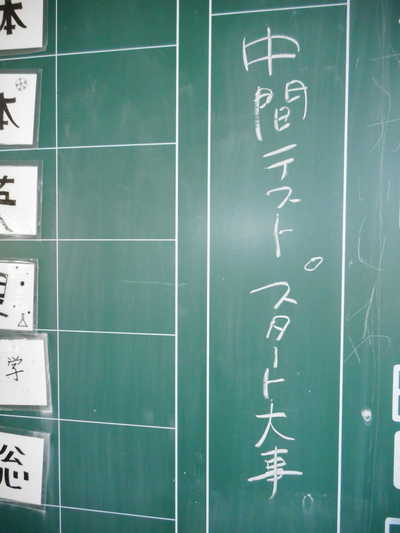 中間テスト。スタート大事。
体
本
英
理
学
総